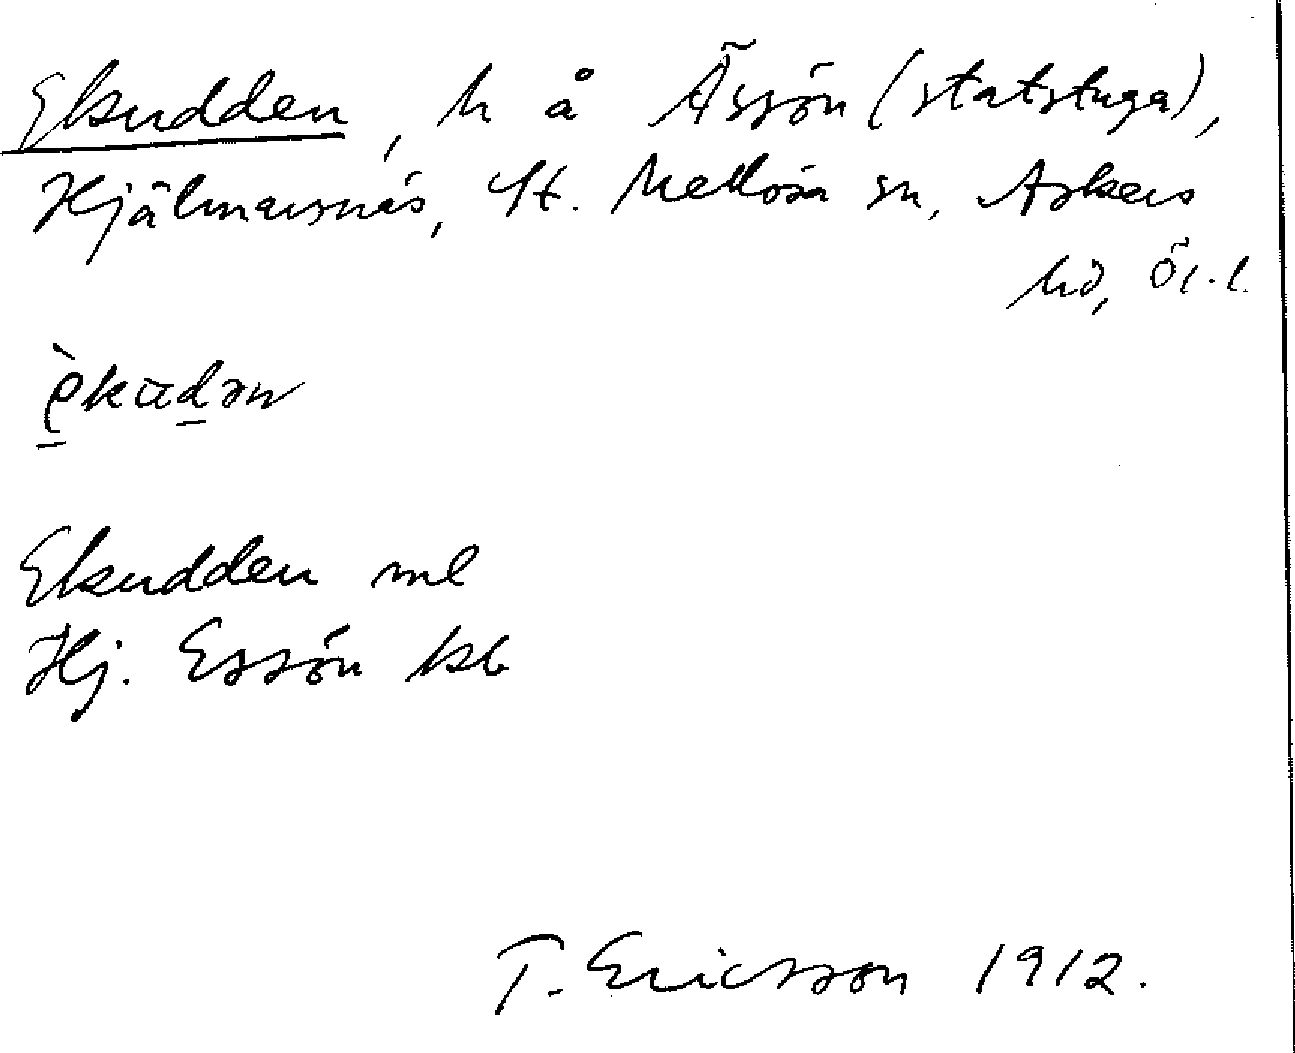 Ekudden, h å Ässön (statstuga),
Hjälmarsnäs, St. Mellösa sn, Askers
hd, Ör. l.
Ekudden ml
Hj. Essön kb
T. Ericsson 1912.